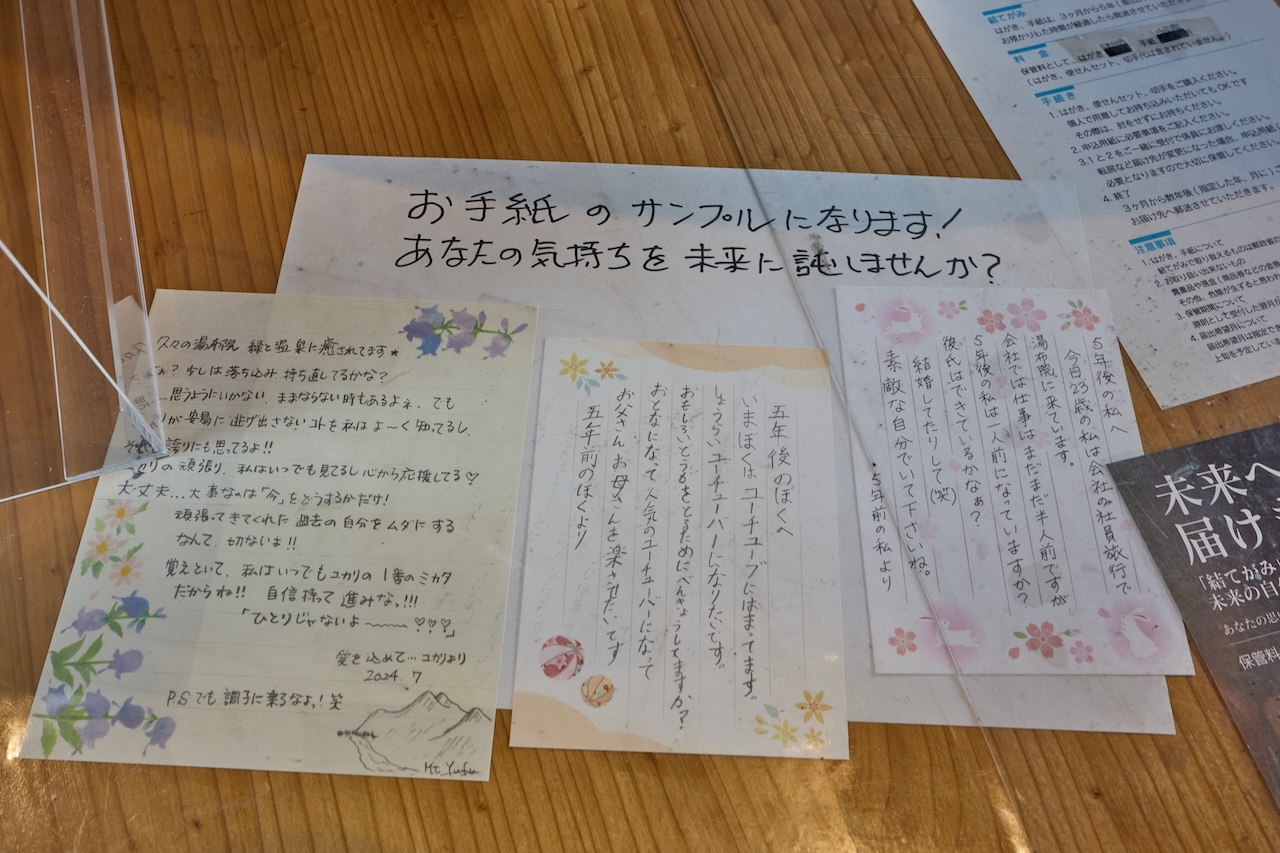 お手紙のサンプルになります!
あなたの気持ちを未来に託しませんか?
久々の湯布院 緑と温泉に癒されてます★
? 少しは落ち込み 持ち直してるかな?
…思うようにいかない、ままならない時もあるよネ. でも
が安易に逃げ出さないコトを私はよ〜く知ってるし、
誇りにも思てるよ!!
の頑張り、私はいつでも見てるし心から応援してる♡
大丈夫...大事なのは「今」をどうするかだけ!
頑張ってきてくれた過去の自分をムダにする
なんて、切ないよ!!
覚えといて、私はいつでもユカリの1番のミカタ
だからね!! 自信持って進みな。!!!
「ひとりじゃないよ〜〜〜♡♡♡」
愛を込めて…ユカリより
2024.7
P.Sでも調子に乗るなよ。!笑
Mt Yufu
五年後のぼくへ
いまぼくはユーチューブにはまってます。
しょうらいユーチューバーになりたいです。
おもしろいどうがをとるためにべんきょうしてますか?
おとなになって人気のユーチューバーになって
お父さんお母さんを楽させたいです
五年前のぼくより
5年後の私へ
今日23歳の私は会社の社員旅行で
湯布院に来ています。
会社では仕事はまだまだ半人前ですが
5年後の私は一人前になっていますか?
彼氏はできているかなぁ?
結婚してたりして(笑)
素敵な自分でいて下さいね。
5年前の私より
結てがみ
はがき、手紙は、3ヶ月から5年
お預かりした時間が経過したら発送させていただきます。
料金
保管料として、はがき 手紙
(はがき、便せんセット、切手代は含まれていません。)
手続き
1. はがき、便せんセット、切手をご購入ください。
個人で用意してお持ち込みいただいてもOKです
その際は、封をせずにお持ちください。
2. 申込用紙に必要事項をご記入ください。
3. 1と2をご一緒に受付で係員にお渡しください。
転居など届け先が変更になった場合、申込用紙
必要となりますので大切に保管してください
4. 終了
3ヶ月から数年後(指定した年、月に)
お届け先へ郵送させていただきます。
注意事項
1. はがき、手紙について
結てがみで取り扱えるものは郵政省の
2. お取り扱い出来ないもの
貴重品や現金(商品券などの金券
その他、危険が生ずると思われ
3. 保管期間について
原則として受付した翌月か
4. 届出希望月について
届出希望月は指定で
上旬を予定していま
未来へ
届け
「結てがみ」
未来の自
あなたの思い
保管料